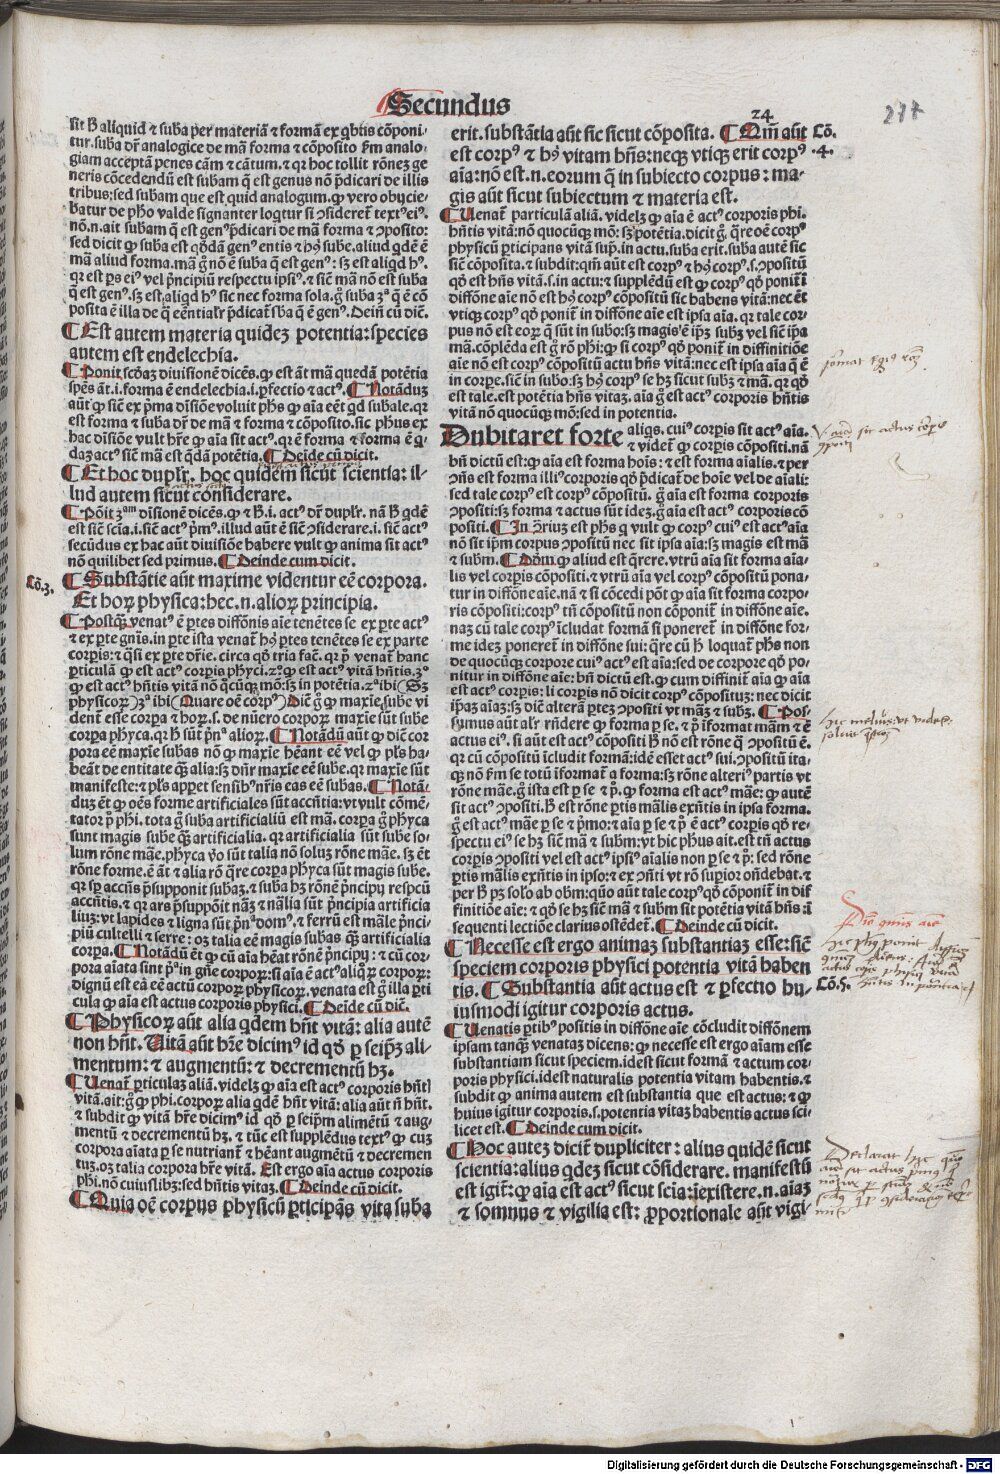 Secundus
24
277
sit ħ aliquid ⁊ suba per materiã ⁊ formã ex qbtis cõponi-
tur. suba dr̃ analogice de mã forma ⁊ cõposito
giam acceptã penes cãm ⁊ cãtum. ⁊ qr hoc tollit rõneȝ ge
neris cõcedendũ est subam q̃ est genus nõ p̃dicari de illis
tribus: sed subam que est quid analogum. ꝙ vero obijcie-
batur de pħo valde signanter loqtur si ꝯsideret̃ textꝰ eiꝰ.
nõ.n.ait subam q̃ est genꝰ p̃dicari de mã forma ⁊ ꝯposito:
sed dicit ꝙ suba est qõdã genꝰ entis ⁊ hꝰ sube. aliud qdẽ ẽ
mã aliud forma. mã gͦ nõ ẽ suba q̃ est genꝰ: sȝ est aliqd hꝰ.
qr est ps eiꝰ vel p̃ncipiũ respectu ipsiꝰ. ⁊ sic̃ mã nõ est suba
q̃ est genꝰ. sȝ est aliqd hꝰ sic nec forma sola. gͦ suba 3ᵃ q̃ ẽ cõ
posita ẽ illa de q̃ eẽntialr̃ p̃dicat̃ sba q̃ ẽ genꝰ. Dein̄ cũ dic̃.
¶ Est autem materia quidez potentia: species
autem est endelechia.
¶ Ponit scðaȝ divisionẽ dicẽs. ꝙ est ãt mã quedã potẽtia
spẽs ãt. i. forma ẽ endelechia. i. ꝑfectio ⁊ actꝰ. ¶ Notãduȝ
aũt ꝙ sic̃ ex p̃ma diĩsiõe voluit pħs ꝙ aĩa eẽt qd subale. qr
est forma ⁊ suba dr̃ de mã ⁊ forma ⁊ cõposito. sic pħus ex
hac diĩsiõe vult hr̃e ꝙ aĩa sit actꝰ. qr ẽ forma ⁊ forma ẽ q̃-
daȝ actꝰ sic̃ mã est q̃dã potẽtia. ¶ Deide cũ dicit.
¶ Et hoc duplr̃. hoc quidẽm sicut scientia: il-
lud autem sicut considerare.
¶ Põit 3ᵃᵐ diĩsionẽ dicẽs. ꝙ ⁊ ħ. i. actꝰ dr̃ duplr̃. nã ħ qdẽ
est sic̃ scĩa. i. sic̃ actꝰ p̃mꝰ. illud aũt ẽ sic̃ ꝯsiderare. i. sic̃ actꝰ
secũdus ex hac aũt divisiõe habere vult ꝙ anima sit actꝰ
nõ quilibet sed primus. ¶ Deinde cum dicit.
Cõ.3.
¶ Substãtie aũt maxime videntur eẽ corpora.
Et horꝝ physica: hec. n. aliorꝝ principia.
¶ Postꝗ̃ venatꝰ ẽ ꝑtes diffõnis aĩe tenẽtes se ex ꝑte actꝰ
⁊ ex ꝑte gñis. in ꝑte ista venat̃ hꝰ ꝑtes tenẽtes se ex parte
corpĩs: ⁊ q̃si ex ꝑte dr̃ie. circa qð tria fac̃. qr p̃ venat̃ hanc
ꝑticulã ꝙ est actꝰ corpĩs phyci. 2.ᵒ ꝙ est actꝰ vitã hñtis. 3.ᵒ
ꝙ est actꝰ hñtis vitã nõ q̃cũqȝ mõ: sȝ in potẽtia. 2ᵃ ibi (Sȝ
physicorꝝ) 3ᵃ ibi (Quare oẽ corpꝰ) Dic̃ gͦ ꝙ maxie sube vi
dent̃ esse corꝑa ⁊ horꝝ. s. de nũero corporꝝ maxie sũt sube
corꝑa phyca. qr ħ sũt p̃nᵃ aliorꝝ. ¶ Notãdũ aũt ꝙ dic̃ cor
pora eẽ maxie subas nõ ꝙ maxie hẽant eẽ vel ꝙ pl̃s ha-
beãt de entitate ꝗ̃ alia: sȝ dñr maxie eẽ sube. qr maxie sũt
manifeste: ⁊ pl̃s appet̃ sensibꝰ nr̃is eas eẽ subas. ¶ Notã-
duȝ ẽt ꝙ oẽs forme artificiales sũt accñtia: vt vult cõmẽ-
tator p̃ phi. tota gͦ suba artificialiũ est mã. corꝑa gͦ phyca
sunt magis sube ꝗ̃ artificialia. qr artificialia sũt sube so-
lum rõne mãe. phyca vͦo sũt talia nõ soluȝ rõne mãe. sȝ ẽt
rõne forme. ẽ ãt ⁊ alia rõ q̃re corꝑa phyca sũt magis sube.
qr sꝑ accñs p̃supponit subaȝ. ⁊ suba hȝ rõnẽ p̃ncipij respcũ
accñtis. ⁊ qr ars p̃suppõit nãȝ ⁊ nãlia sũt p̃ncipia artificia
liuȝ: vt lapides ⁊ ligna sũt p̃nᵃ domꝰ. ⁊ ferrũ est mãle p̃nci-
piũ cultelli ⁊ serre: oȝ talia eẽ magis subas ꝗ̃ artificialia
corꝑa. ¶ Notãdũ ẽt ꝙ cũ aĩa hẽat rõnẽ p̃ncipij: ⁊ cũ cor-
pora aĩata sint p̃ᵃ in gñe corporꝝ: si aĩa ẽ actꝰ aliqrꝝ corporꝝ:
dignũ est eã eẽ actũ corporꝝ physicorꝝ. venata est gͦ illa ꝑti
cula ꝙ aĩa est actus corporis physici. ¶ Deide cũ dic̃.
¶ Physicorꝝ aũt alia qdem hñt vitã: alia autẽ
non hñt. Uitã aũt hr̃e dicimꝰ id qð ꝑ seipȝ ali-
mentum: ⁊ augmentũ: ⁊ decrementũ hȝ.
¶ Uenat̃ ꝑticulaȝ aliã. videlȝ ꝙ aĩa est actꝰ corporis hñtis
vitã. ait: gͦ ꝙ phi. corporꝝ alia qdẽ hñt vitã: alia aũt ñ hñt.
⁊ subdit ꝙ vitã hr̃e dicimꝰ id qð ꝑ seipm alimẽtũ ⁊ aug-
mentũ ⁊ decrementũ hȝ. ⁊ tũc est supplẽdus textꝰ ꝙ cuȝ
corpora aĩata ꝑ se nutriant̃ ⁊ hẽant augmẽtũ ⁊ decremen
tuȝ. oȝ talia corpora hr̃e vitã. Est ergo aĩa actus corporis
phi. nõ cuiuslibȝ: sed hñtis vitaȝ. ¶ Deinde cũ dicit.
¶ Quia oẽ corpus physicũ ꝑticipãs vita suba
erit. substãtia aũt sic sicut cõposita. ¶ Qm̃ aũt
Cõ.
.4.
est corpꝰ ⁊ hꝰ vitam hñs: neqȝ vtiqȝ erit corpꝰ
aĩa: nõ est. n. eorum q̃ in subiecto corpus: ma-
gis aũt sicut subiectum ⁊ materia est.
¶ Uenat̃ particulã aliã. videlȝ ꝙ aĩa ẽ actꝰ corporis phi.
hñtis vitã: nõ quocũqȝ mõ: sȝ potẽtia. dicit gͦ. q̃re oẽ corpꝰ
physicũ ꝑticipans vitã sup̃. in actu. suba erit. suba autẽ sic
sic̃ cõposita. ⁊ subdit: qm̃ aũt est corpꝰ ⁊ hꝰ corpꝰ. s. ꝯpositũ
qð est hñs vitã. s. in actu: ⁊ supplẽdũ est ꝙ corpꝰ qð ponit̃ ĩ
diffõne aĩe nõ est hꝰ corpꝰ cõpositũ sic habens vitã: nec ẽt
vtiqȝ corpꝰ qð ponit̃ in diffõne aĩe est ipsa aĩa. qr tale cor-
pus nõ est eorꝝ q̃ sũt in subo: sȝ magisꝰ ẽ ip̃ȝ subȝ vel sic̃ ip̃a
mã. cõplẽda est gͦ rõ phi: ꝙ si corpꝰ qð ponit̃ in diffinitiõe
aĩe nõ est corpꝰ cõpositũ actu hñs vitã: nec est ipsa aĩa q̃ ẽ
in corpe. sic̃ in subo: sȝ hꝰ corpꝰ se hȝ sicut subȝ ⁊ mã. qr qð
est tale. est potẽtia hñs vitaȝ. aĩa gͦ est actꝰ corporis hñtis
vitã nõ quocũqȝ mõ: sed in potentia.
Dubitaret forte aliqs. cuiꝰ corpĩs sit actꝰ aĩa.
⁊ videt̃ ꝙ corpĩs cõpositi. nã
bñ dictũ est: ꝙ aĩa est forma hoĩs: ⁊ est forma aĩalis. ⁊ per
ꝯñs est forma illiꝰ corporis qð p̃dicat̃ de hoĩe vel de aĩali:
sed tale corpꝰ est corpꝰ cõpositũ. gͦ aĩa est forma corporis
ꝯpositi: sȝ forma ⁊ actus sũt ideȝ. gͦ aĩa est actꝰ corporis cõ
positi. ¶ In ꝯriuȝ est pħs q̃ vult ꝙ corpꝰ cuiꝰ est actꝰ aĩa
nõ sit ip̃m corpus ꝯpositũ nec sit ipsa aĩa: sȝ magis est mã
⁊ subm̃. ¶ Dõm̃ ꝙ aliud est q̃rere. vtrũ aĩa sit forma aĩa-
lis vel corpĩs cõpositi. ⁊ vtrũ aĩa vel corpꝰ cõpositũ pona-
tur in diffõne aĩe. nã ⁊ si cõcedi põt ꝙ aĩa sit forma corpo-
ris cõpositi: corpꝰ tñ cõpositũ non cõponit̃ in diffõne aĩe.
naȝ cũ tale corpꝰ ĩcludat formã si poneret̃ in diffõne for-
me ideȝ poneret̃ in diffõne sui: q̃re cũ ħ loquat̃ pħs non
de quocũqȝ corpore cuiꝰ actꝰ est aĩa: sed de corpore qð po-
nitur in diffõne aĩe: bñ dictũ est. ꝙ cum diffinit̃ aĩa ꝙ aĩa
est actꝰ corpĩs: li corpĩs nõ dicit corpꝰ cõpositũȝ: nec dicit
ip̃aȝ aĩaȝ: sȝ dic̃ alterã ꝑteȝ ꝯpositi vt mãȝ ⁊ subȝ. ¶ Pos-
sumus aũt alr̃ rñdere ꝙ forma ꝑ se. ⁊ p̃ ĩformat mãm ⁊ ẽ
actus eiꝰ. si aũt est actꝰ cõpositi ħ nõ est rõne q̃ ꝯpositũ ẽ.
qr cũ cõpositũ ĩcludit formã: idẽ esset actꝰ sui. ꝯpositũ ita-
qȝ nõ ħm se totũ ĩformat̃ a forma: sȝ rõne alteriꝰ partis vt
rõne mãe. gͦ ista est ꝑ se ⁊ p̃. ꝙ forma est actꝰ mãe: ꝙ autẽ
sit actꝰ ꝯpositi. ħ est rõne ꝑtis mãlis exñtis in ipsa forma.
gͦ est actꝰ mãe ꝑ se ⁊ p̃mo: ⁊ aĩa ꝑ se ⁊ p̃ ẽ actꝰ corpĩs qð re-
spectu eiꝰ se hȝ sic̃ mã ⁊ subm̃: vt hic pħus ait. est tñ actus
corpĩs ꝯpositi vel est actꝰ ipsiꝰ aĩalis non ꝑ se ⁊ p̃: sed rõne
ꝑtis mãlis exñtis in ipso: ⁊ ex ꝯñti vt rõ superior oñdebat. ⁊
per ħ pȝ solo ab obm: quõ aũt tale corpꝰ qð cõponit̃ in dif
finitiõe aĩe: ⁊ qð se hȝ sic̃ mã ⁊ subm̃ sit potẽtia vitã hñs: ĩ
sequenti lectiõe clarius ostẽdet̃. ¶ Deinde cũ dicit.
¶ Necesse est ergo animaȝ substantiaȝ esse: sic̃
speciem corporis physici potentia vitã haben
tis. ¶ Substantia aũt actus est ⁊ ꝑfectio hu-
Cõ.5.
iusmodi igitur corporis actus.
¶ Uenatis ꝑtibꝰ positis in diffõne aĩe cõcludit diffõnem
ipsam tanꝗ̃ venataȝ dicens: ꝙ necesse est ergo aĩam esse
substantiam sicut speciem. idest sicut formã ⁊ actum cor-
poris physici. idest naturalis potentia vitam habentis. ⁊
subdit ꝙ anima autem est substantia que est actus: ⁊ ꝙ
huius igitur corporis. s. potentia vitaȝ habentis actus sci-
licet est. ¶ Deinde cum dicit.
¶ Hoc auteȝ dicit̃ dupliciter: alius quidẽ sicut
scientia: alius qdeȝ sicut cõsiderare. manifestũ
est igit̃: ꝙ aĩa est actꝰ sicut scĩa: ĩexistere. n. aĩaȝ
⁊ somnus ⁊ vigilia est: ꝓportionale aũt vigi-
Digitalisierung gefördert durch die Deutsche Forschungsgemeinschaft - DFG